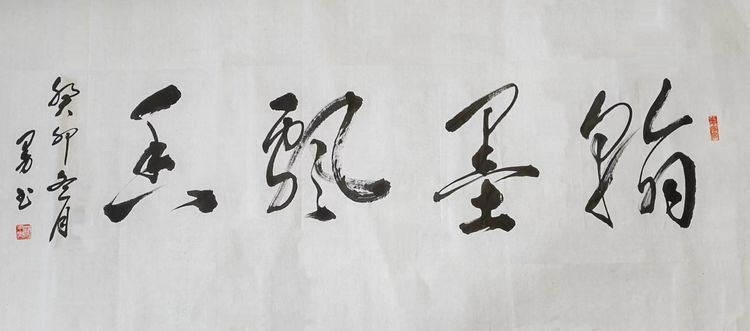 翰墨飘香
癸卯冬月
勇书